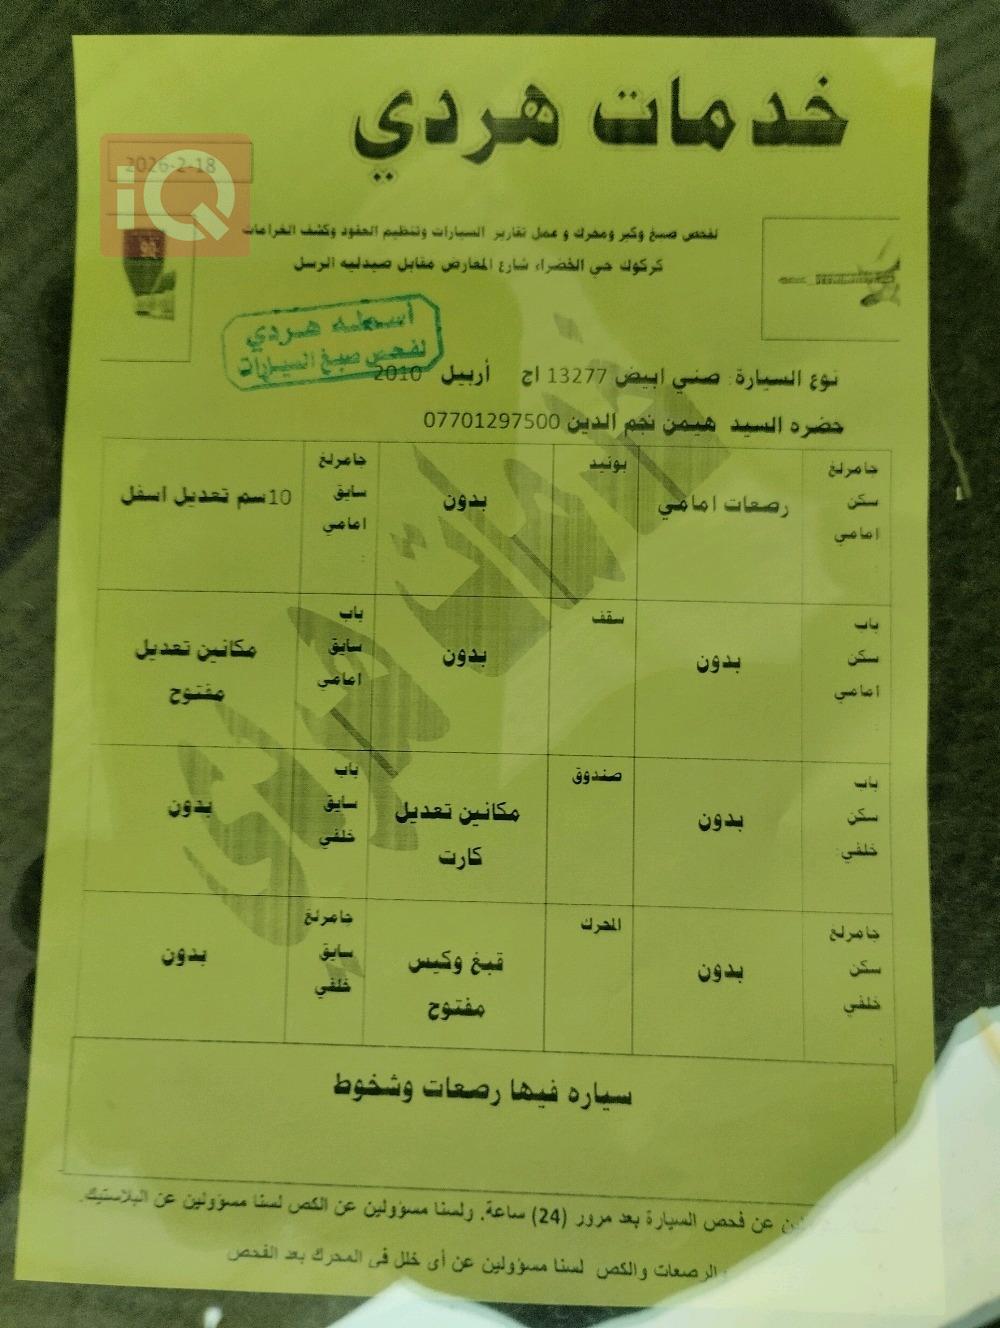 خدمات هردي
2026-2-18
iQ
لفحص صبغ وكير ومحرك و عمل تقارير السيارات وتنظيم العقود وكشف الغرامات
كركوك حي الخضراء شارع المعارض مقابل صيدليه الرسل
أسطه هردي
لفحص صبغ السيارات
نوع السيارة: صني ابيض 13277 اج أربيل 2010
حضره السيد هيمن نجم الدين 07701297500
جامرلغ سكن امامي
رصعات امامي
بونيد
بدون
جامرلغ سايق امامي
10سم تعديل اسفل
باب سكن امامي
بدون
سقف
بدون
باب سايق امامي
مكانين تعديل مفتوح
باب سكن خلفي:
بدون
صندوق
مكانين تعديل كارت
باب سايق خلفي
بدون
جامرلغ سكن خلفي
بدون
المحرك
قبغ وكيس مفتوح
جامرلغ سايق خلفي
بدون
سياره فيها رصعات وشخوط
عن فحص السيارة بعد مرور (24) ساعة. ولسنا مسؤولين عن الكص لسنا مسؤولين عن البلاستيك.
والرصعات والكص لسنا مسؤولين عن أى خلل فى المحرك بعد الفحص
خدمات هردي